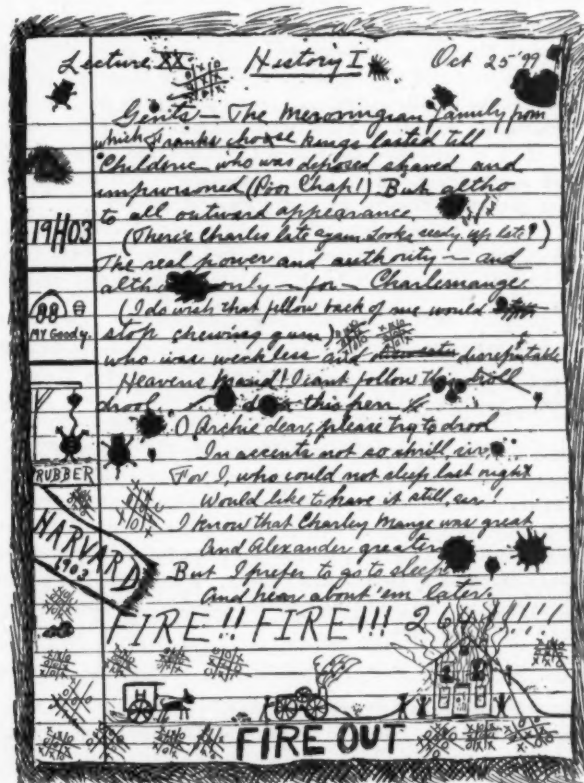 Lecture XX. History I Oct 25 '99
Gents — The Merovingian family from
which Franks choose kings lasted till
Childeric who was deposed shaved and
imprisoned (Poor Chap!) But altho
to all outward appearance.
19H03
(There's Charles late again. Looks seedy. Up late?)
The real power and authority — and
altho only — for — Charlemange
88
MY Goody.
(I do wish that fellow back of me would
stop chewing gum)
who was weckless and disreputable
Heavens Maud! I cant follow this droll
drool. this pen
RUBBER
O Archie dear, please try to drool
In accents not so shrill, sir,
For I, who could not sleep last night
Would like to have it still, sir!
HARVARD
1903
I know that Charley Mange was great
And Alexander greater
But I prefer to go to sleep
And hear about 'em later.
FIRE!! FIRE!!! 264!!!!!
FIRE OUT